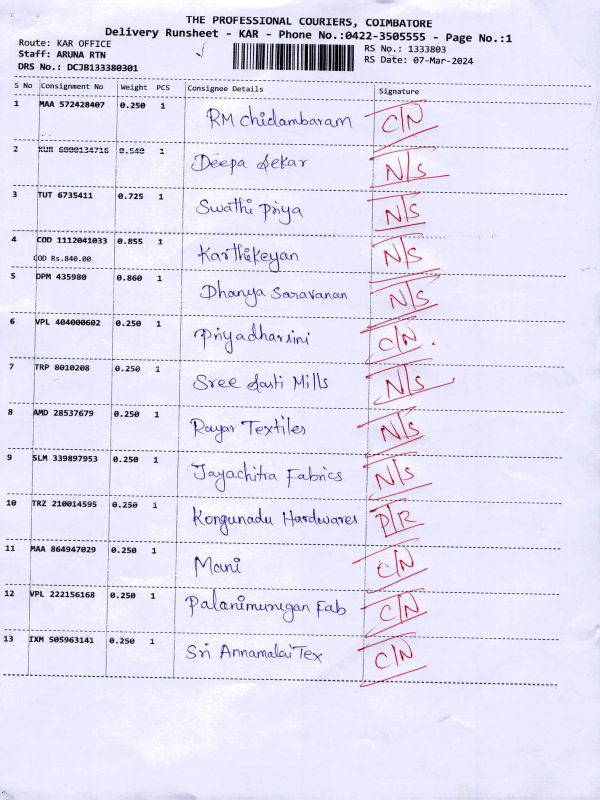 THE PROFESSIONAL COURIERS, COIMBATORE
Delivery Runsheet - KAR - Phone No.:0422-3505555 - Page No.:1
Route: KAR OFFICE
RS No.: 1333803
Staff: ARUNA RTN
RS Date: 07-Mar-2024
DRS No.: DCJB133380301
S No Consignment No Weight PCS Consignee Details Signature
1 MAA 572428407 0.250 1 RM Chidambaram C/N
2 KUR 6000134716 0.540 1 Deepa Sekar N/S
3 TUT 6735411 0.725 1 Swathi Priya N/S
4 COD 1112041033 0.855 1 Karthikeyan N/S
COD Rs.840.00
5 DPM 435980 0.860 1 Dhanya Saravanan N/S
6 VPL 404000602 0.250 1 Priyadharsini C/N
7 TRP 8010208 0.250 1 Sree Sasti Mills N/S
8 AMD 28537679 0.250 1 Rayar Textiles N/S
9 SLM 339897953 0.250 1 Jayachitra Fabrics N/S
10 TRZ 210014595 0.250 1 Kongunadu Hardwares P/R
11 MAA 864947029 0.250 1 Mani C/N
12 VPL 222156168 0.250 1 Palanimurugan Fab C/N
13 IXM 505963141 0.250 1 Sri Annamalai Tex C/N